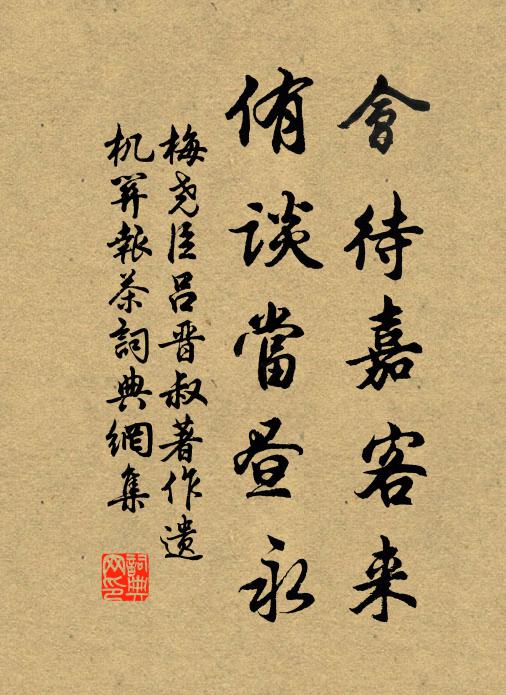 會待嘉客来
侑談當昼永
梅尧臣吕晋叔著作遗
机報茶詞典網集
詞典网印